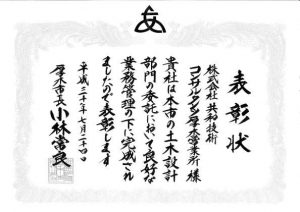 表彰状
株式会社 共和技術
コンサルタンツ厚木営業所 様
貴社は本市の土木設計
部門の委託において良好な
業務管理の下に完成され
ましたので表彰します
平成三十年七月二十四日
厚木市長 小林常良